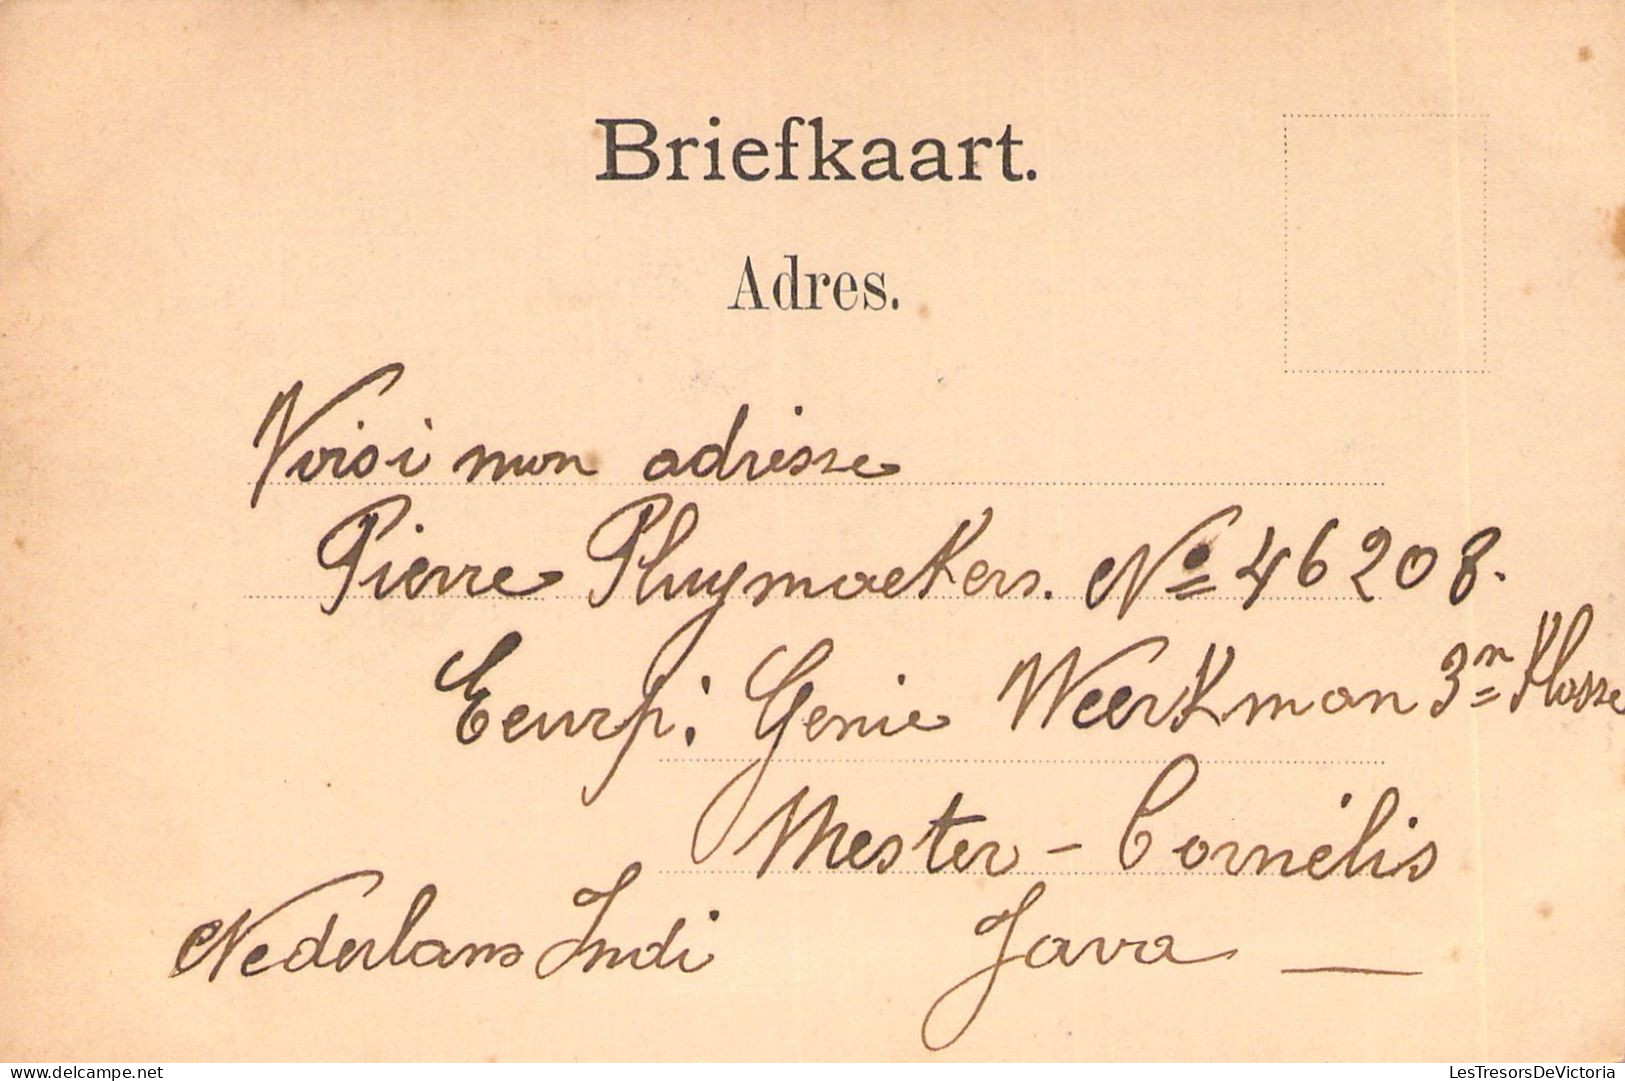 Briefkaart.
Adres.
Voisi mon adresse
Pierre Pluymaekers. No 46208.
Eeurp. Genie Weerkman 3n Klasse
Mester - Cornélis
Nederlans Indi Java
delcampe.net
LesTresorsDeVictoria